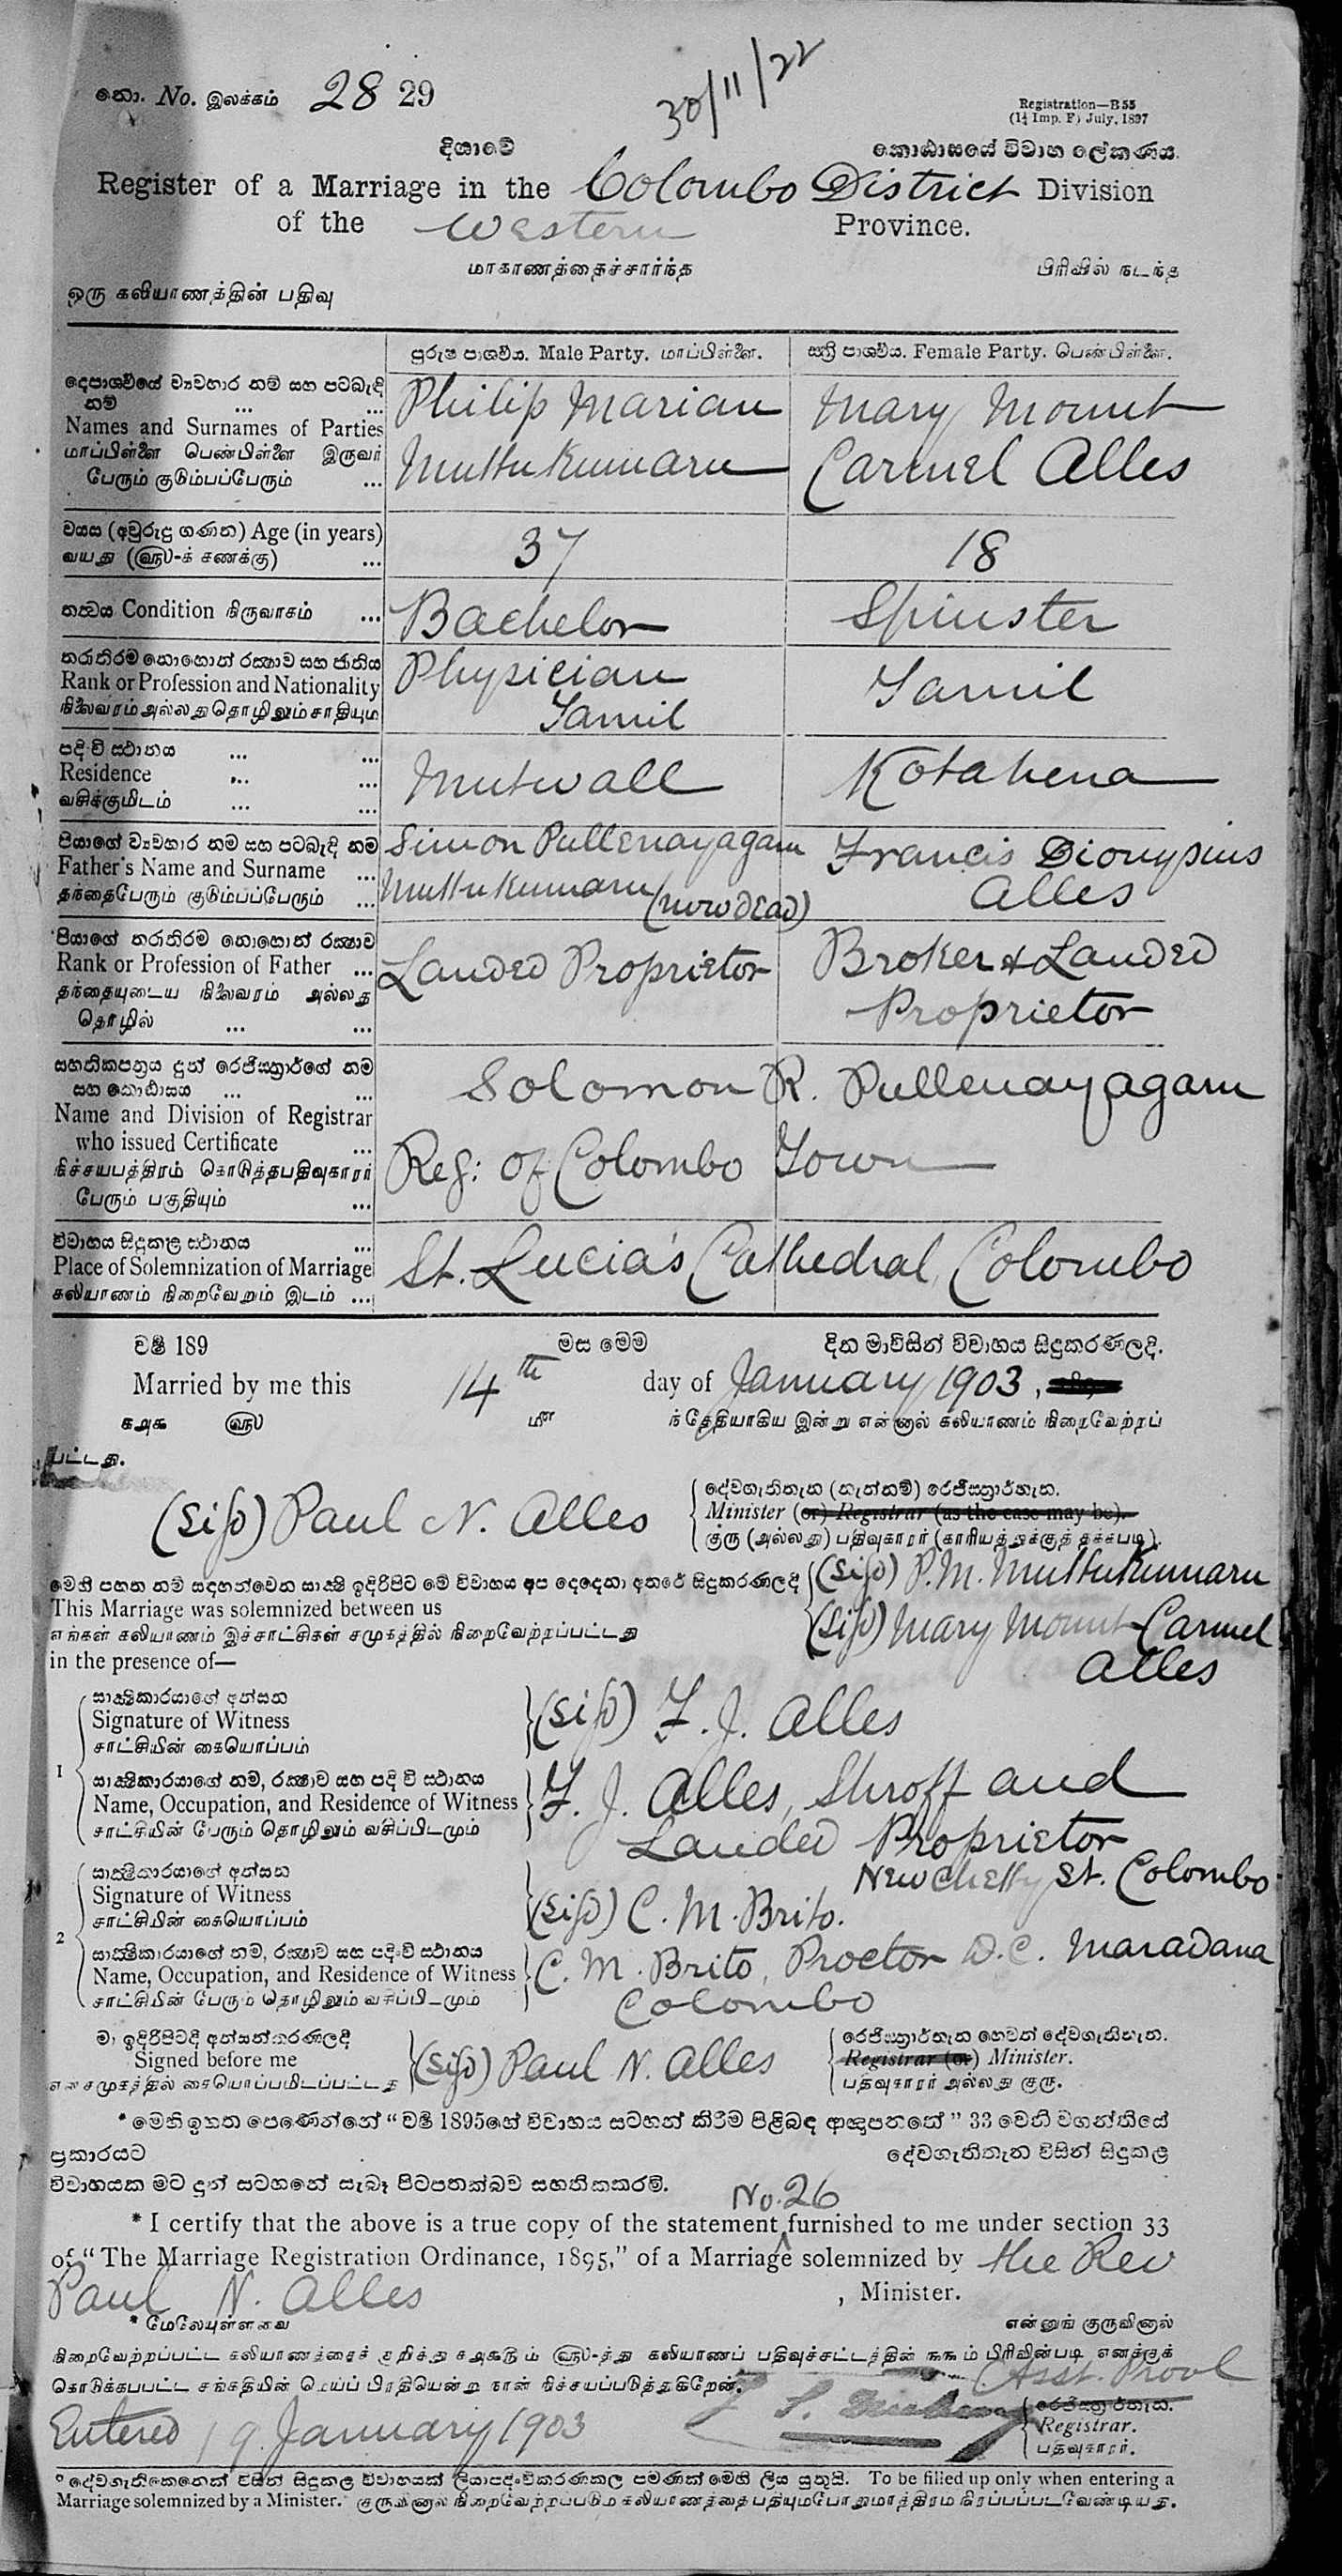 නො. No. இலக்கம் 28 29
30/11/22
Registration—B 55
(1½ Imp. F) July, 1897
දිසාවේ කොඨාසයේ විවාහ ලේකණය.
Register of a Marriage in the Colombo District Division
of the Western Province.
மாகாணத்தைச்சார்ந்த பிரிவில் நடந்த
ஒரு கலியாணத்தின் பதிவு
පුරුෂ පාර්ශවය. Male Party. மாப்பிள்ளை. ස්ත්‍රී පාර්ශවය. Female Party. பெண்பிள்ளை.
දෙපාර්ශවයේ ව්‍යවහාර නම් සහ පටබැඳි
නම් ... ...
Names and Surnames of Parties
மாப்பிள்ளை பெண்பிள்ளை இருவர்
பேரும் குடும்பப்பேரும் ...
Philip Marian
Muttukumaru
Mary Mount
Carmel Alles
වයස (අවුරුදු ගණන) Age (in years)
வயது (௵)-க் கணக்கு) ...
37 18
තත්වය Condition நிருவாகம் ...
Bachelor Spinster
තරාතිරම නොහොත් රක්ෂාව සහ ජාතිය
Rank or Profession and Nationality
நிலைவரம் அல்லது தொழிலும் சாதியும்
Physician
Tamil
Tamil
පදිංචි ස්ථානය ... ...
Residence ... ...
வசிக்குமிடம் ... ...
Mutwall Kotahena
පියාගේ ව්‍යවහාර නම සහ පටබැඳි නම
Father's Name and Surname ...
தந்தைபேரும் குடும்பப்பேரும் ...
Simon Pullenayagam
Muttukumaru (now dead)
Francis Dionysius
Alles
පියාගේ තරාතිරම නොහොත් රක්ෂාව
Rank or Profession of Father ...
தந்தையுடைய நிலைவரம் அல்லது
தொழில் ... ...
Landed Proprietor
Broker & Landed
Proprietor
සහතිකපත්‍රය දුන් රෙජිස්ත්‍රාර්ගේ නම
සහ කොඨාසය ... ...
Name and Division of Registrar
who issued Certificate ...
நிச்சயபத்திரம் கொடுத்தபதிவுகாரர்
பேரும் பகுதியும் ...
Solomon R. Pullenayagam
Reg: of Colombo Town
විවාහය සිදුකළ ස්ථානය ...
Place of Solemnization of Marriage
கலியாணம் நிறைவேறும் இடம் ...
St. Lucia's Cathedral, Colombo
වර්ෂ 189 මස මෙම දින මාවිසින් විවාහය සිදුකරණලදි.
Married by me this 14th day of January 1903,
௧௮௯ ௵ ௴ ந் தேதியாகிய இன்று என்னால் கலியாணம் நிறைவேற்றப்
பட்டது.
(Sigd) Paul N. Alles
දේවගැතිතැන (නැත්නම්) රෙජිස්ත්‍රාර්තැන.
Minister (or) Registrar (as the case may be).
குரு (அல்லது) பதிவுகாரர் (காரியத்துக்குத் தக்கபடி).
මෙහි පහත නම් සඳහන්වෙන සාක්ෂි ඉදිරිපිට මේ විවාහය අප දෙදෙනා අතරේ සිදුකරණලදි
This Marriage was solemnized between us
எங்கள் கலியாணம் இச்சாட்சிகள் சமுகத்தில் நிறைவேற்றப்பட்டது
in the presence of—
(Sigd) P. M. Muttukumaru
(Sigd) Mary Mount Carmel
Alles
1
සාක්ෂිකාරයාගේ අත්සන
Signature of Witness
சாட்சியின் கையொப்பம்
(Sigd) F. J. Alles
සාක්ෂිකාරයාගේ නම, රක්ෂාව සහ පදිංචි ස්ථානය
Name, Occupation, and Residence of Witness
சாட்சியின் பேரும் தொழிலும் வசிப்பிடமும்
F. J. Alles, Shroff and
Landed Proprietor
New Chetty St. Colombo
2
සාක්ෂිකාරයාගේ අත්සන
Signature of Witness
சாட்சியின் கையொப்பம்
(Sigd) C. M. Brito.
සාක්ෂිකාරයාගේ නම, රක්ෂාව සහ පදිංචි ස්ථානය
Name, Occupation, and Residence of Witness
சாட்சியின் பேரும் தொழிலும் வசிப்பிடமும்
C. M. Brito, Proctor D.C. Maradana
Colombo
මා ඉදිරිපිටදී අත්සන්කරණලදී
Signed before me
என் சமுகத்தில் கையொப்பமிடப்பட்டது
(Sigd) Paul N. Alles
රෙජිස්ත්‍රාර්තැන හෙවත් දේවගැතිතැන.
Registrar (or) Minister.
பதிவுகாரர் அல்லது குரு.
* මෙහි ඉහත පෙණෙන්නේ “වර්ෂ 1895හේ විවාහය සටහන් කිරීම පිළිබඳ ආඥාපනතේ” 33 වෙනි වගන්තියේ
ප්‍රකාරයට දේවගැතිතැන විසින් සිදුකළ
විවාහයක මට දුන් සටහනේ සැබෑ පිටපතක්බව සහතිකකරමි.
No. 26
* I certify that the above is a true copy of the statement ‸ furnished to me under section 33
of “The Marriage Registration Ordinance, 1895,” of a Marriage solemnized by the Rev
Paul N. Alles , Minister.
* மேலேயுள்ளவை என்னுங் குருவினால்
நிறைவேற்றப்பட்ட கலியாணத்தைக் குறித்து ௧௮௯௫ம் ௵-த்து கலியாணப் பதிவுச்சட்டத்தின் ௩௩ம் பிரிவின்படி எனக்குக்
கொடுக்கப்பட்ட சங்கதியின் மெய்ப் பிரதியென்று நான் நிச்சயப்படுத்துகிறேன்.
Asst. Provl
Entered 19 January 1903
රෙජිස්ත්‍රාර්තැන.
Registrar.
பதிவுகாரர்.
* දේවගැතිකෙනෙක් විසින් සිදුකල විවාහයක් ලියාපදිංචිකරණකල පමණක් මෙහි ලිය යුතුයි. To be filled up only when entering a
Marriage solemnized by a Minister. குருவினால் நிறைவேற்றப்படும் கலியாணத்தை பதியும்போதுமாத்திரம் நிரப்பப்படவேண்டியது.